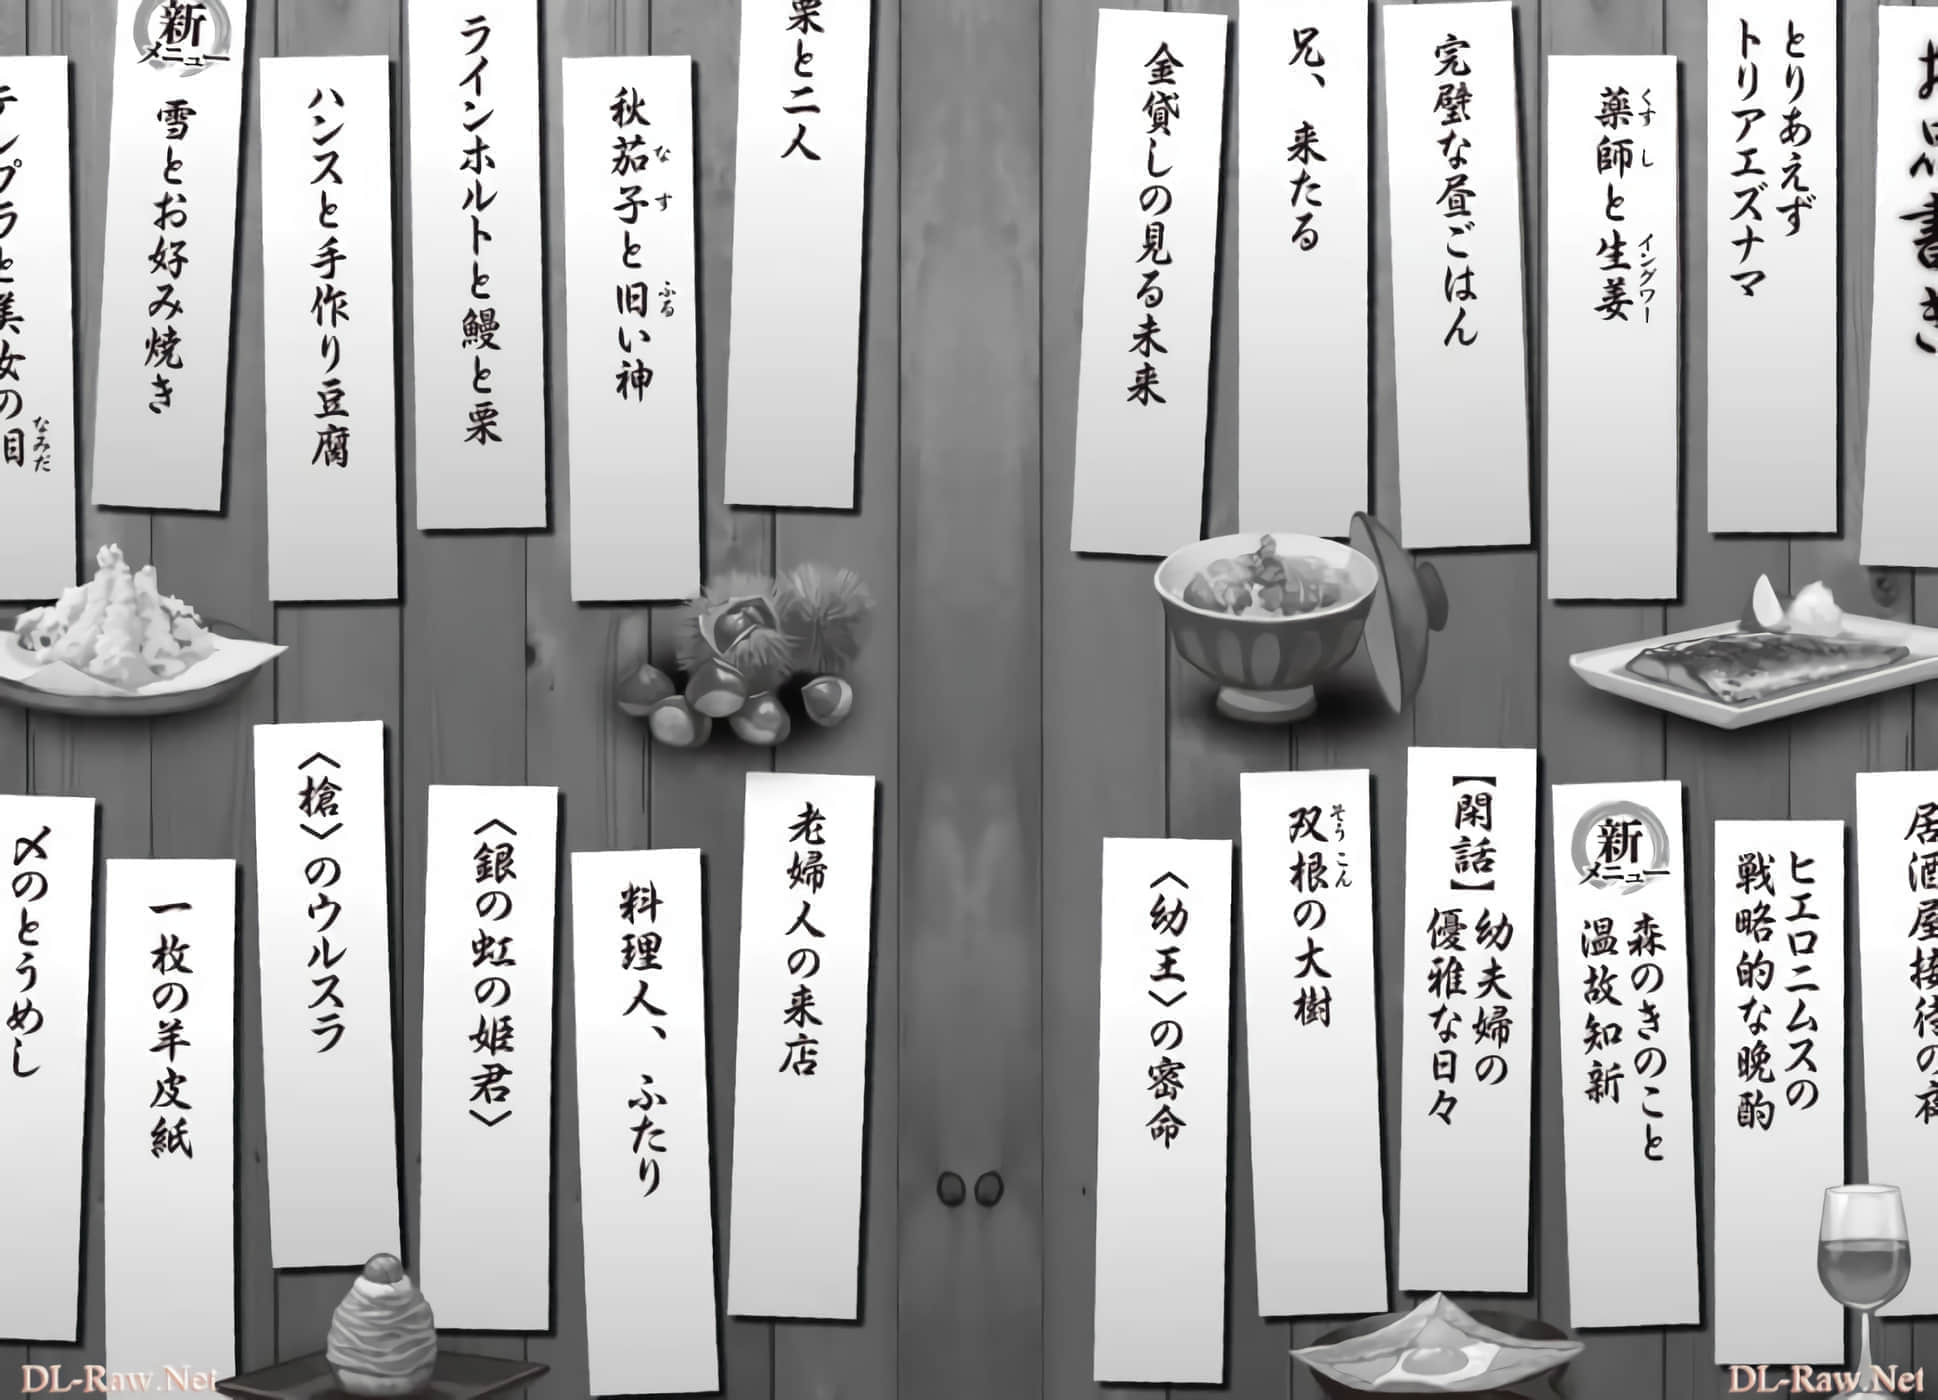 お品書き
とりあえず
トリアエズナマ
薬師と生姜
くすし
イングワー
完璧な昼ごはん
兄、来たる
金貸しの見る未来
居酒屋接待の夜
ヒエロニムスの
戦略的な晩酌
新
メニュー
森のきのこと
温故知新
【閑話】幼夫婦の
優雅な日々
双根の大樹
そうこん
〈幼王〉の密命
栗と二人
秋茄子と旧い神
なす
ふる
ラインホルトと鰻と栗
ハンスと手作り豆腐
新
メニュー
雪とお好み焼き
テンプラと美女の目
なみだ
老婦人の来店
料理人、ふたり
〈銀の虹の姫君〉
〈槍〉のウルスラ
一枚の羊皮紙
〆のとうめし
DL-Raw.Net
DL-Raw.Net